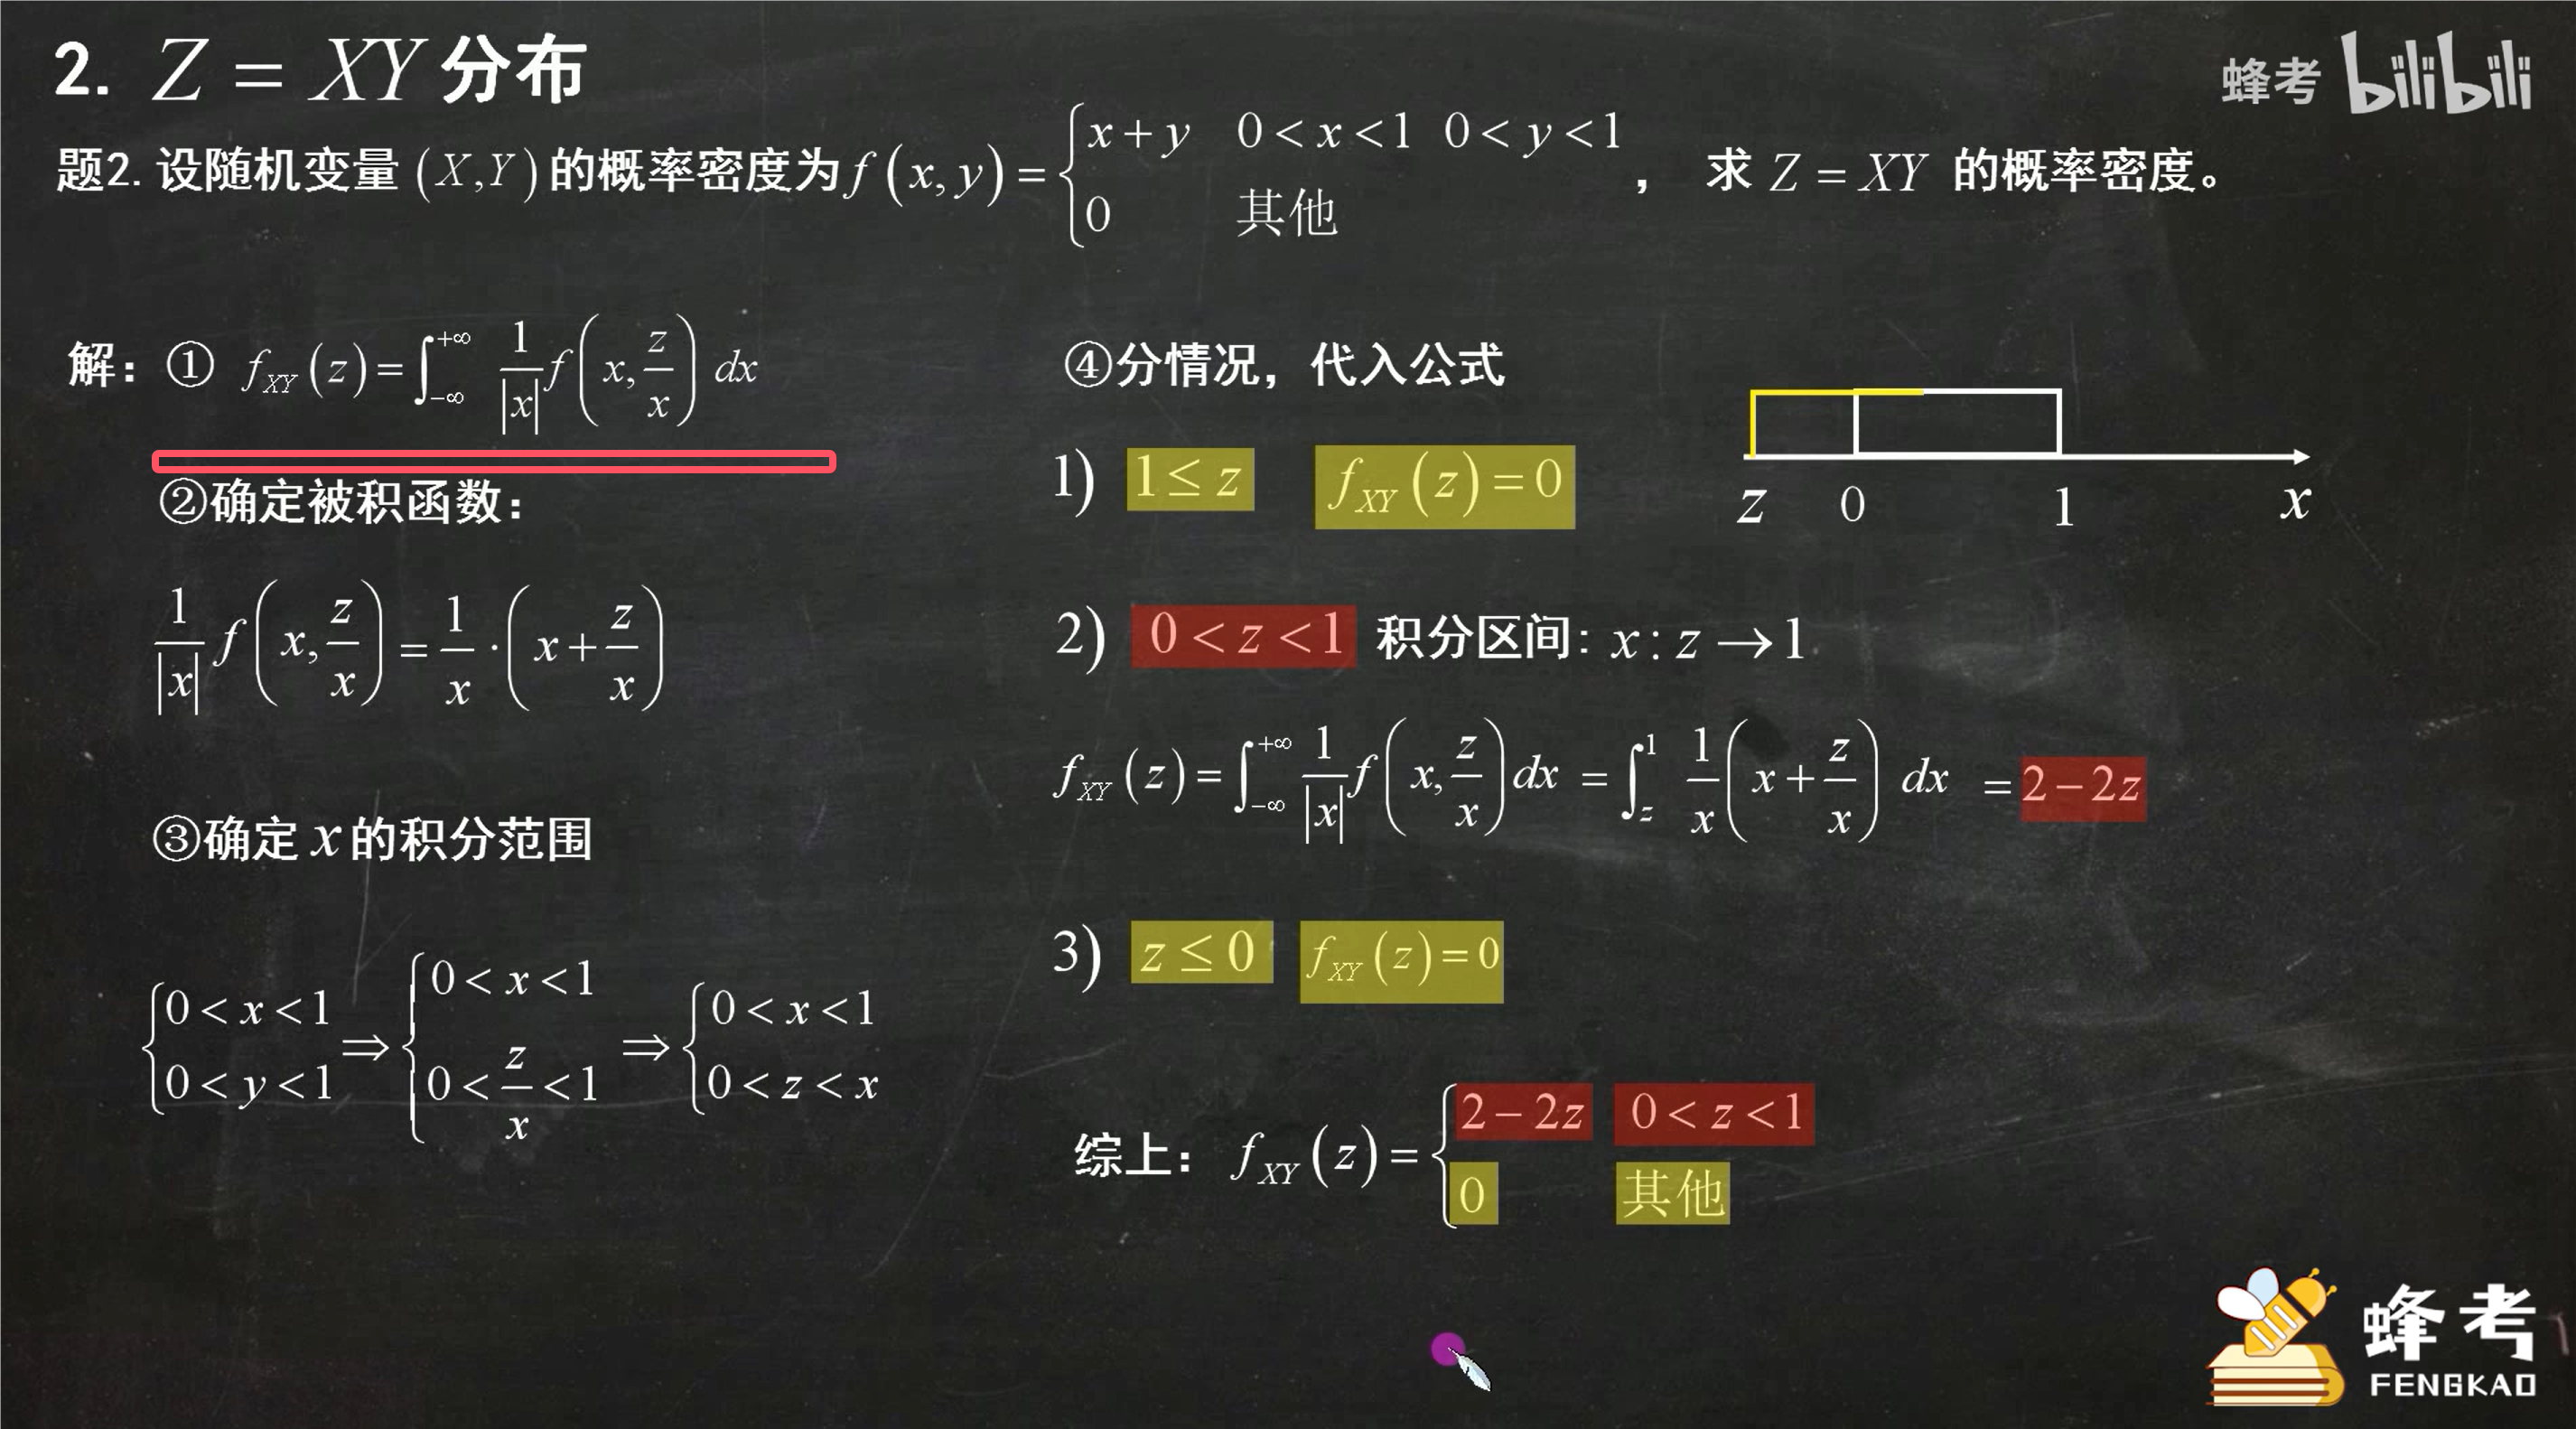 2. Z = XY 分布
蜂考 bilibili
题2. 设随机变量 (X,Y) 的概率密度为 f(x,y) = { x+y 0<x<1 0<y<1 , 求 Z = XY 的概率密度。
0 其他
解：① f_{XY}(z) = ∫_{-∞}^{+∞} \frac{1}{|x|} f(x, \frac{z}{x}) dx
②确定被积函数：
\frac{1}{|x|} f(x, \frac{z}{x}) = \frac{1}{x} · (x + \frac{z}{x})
③确定 x 的积分范围
{ 0<x<1 ⇒ { 0<x<1 ⇒ { 0<x<1
0<y<1 0<\frac{z}{x}<1 0<z<x
④分情况，代入公式
z 0 1 x
1) 1≤z f_{XY}(z)=0
2) 0<z<1 积分区间：x:z→1
f_{XY}(z) = ∫_{-∞}^{+∞} \frac{1}{|x|} f(x, \frac{z}{x}) dx = ∫_{z}^{1} \frac{1}{x} (x + \frac{z}{x}) dx = 2-2z
3) z≤0 f_{XY}(z)=0
综上： f_{XY}(z) = { 2-2z 0<z<1
0 其他
蜂考
FENGKAO